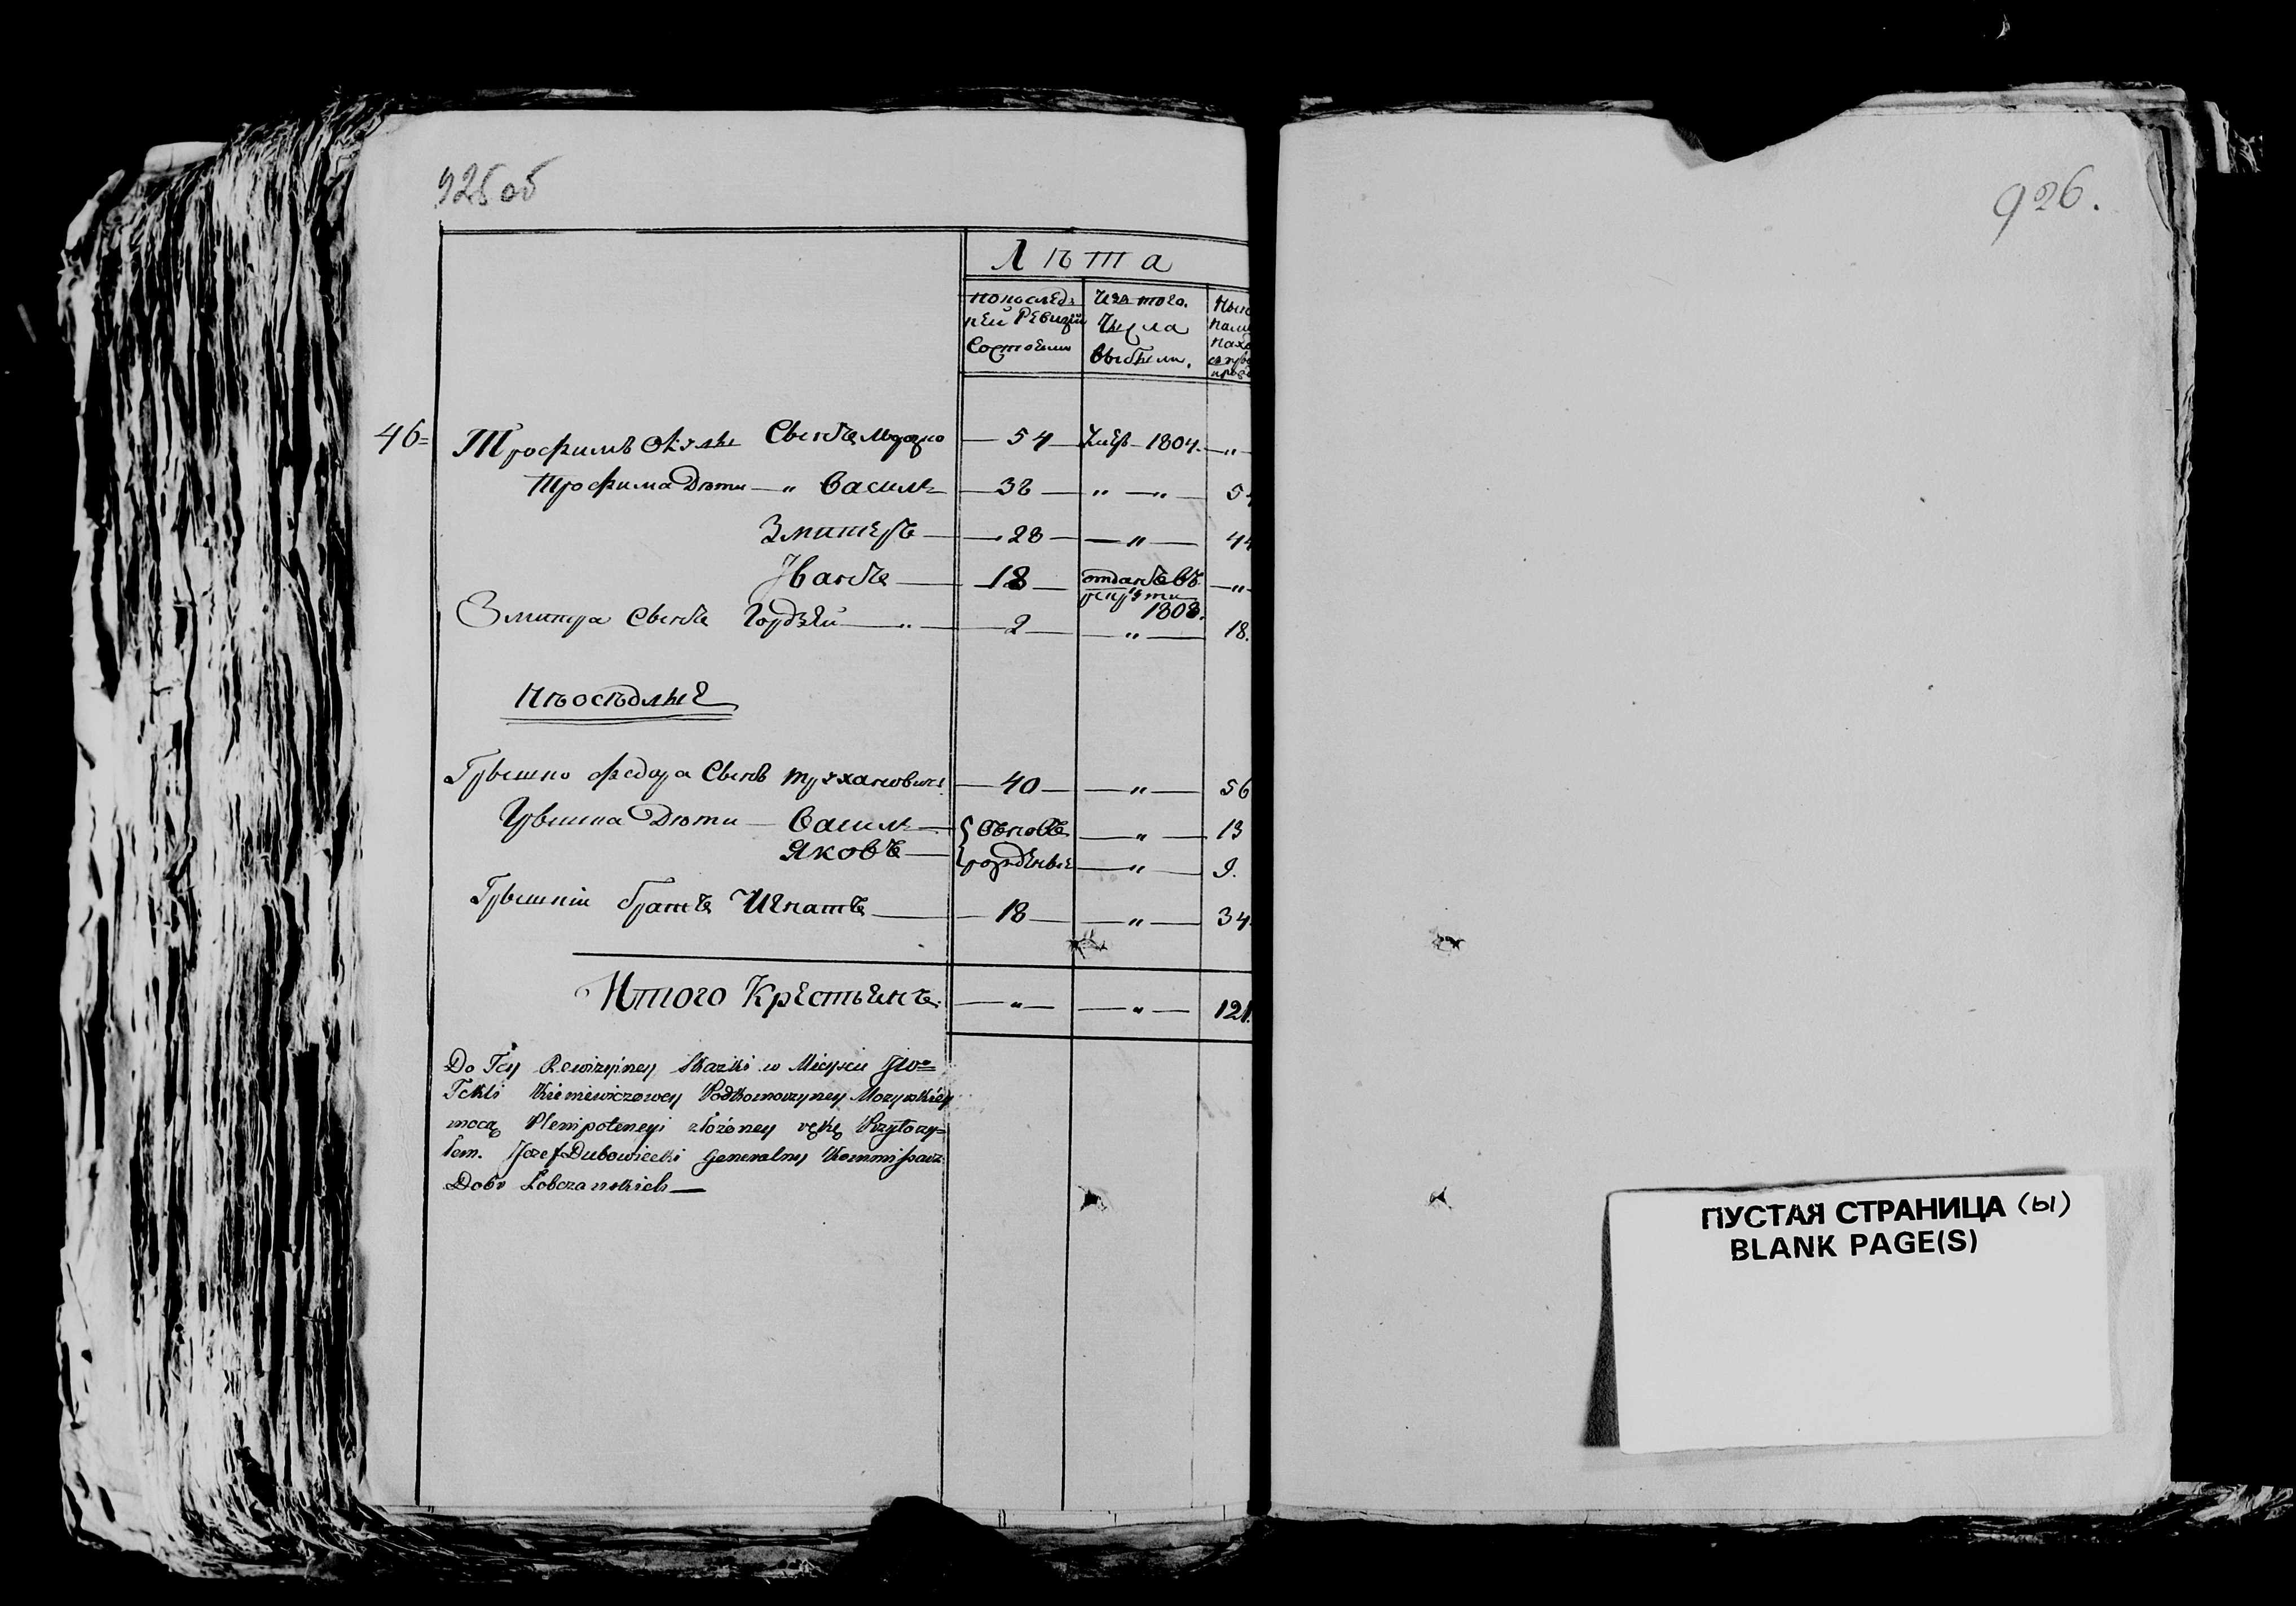 925 об
926.
Лѣта
попослед:
ней Ревизiи
Состоели
Изъ того.
Числа
выбыли.
46=
Трофимъ Сынъ — 54 — Умеръ — 1804. — „ —
Трофима Дѣти — „ Василь — 38 — „ — „ — 54
Змитеръ — 28 — „ — 44
Иванъ — 18 — отданъ въ — „ —
рекруты
1808.
Змитра Сынъ Гордѣй — „ — 2 — „ — 18.
Нѣосѣдлые
Грышко Федора Сынъ Трухановичъ — 40 — „ — 56
Грышка Дѣти — Василь — { вновь — „ — 13
Яковъ — { рожденые — „ — 9.
Грышкiи братъ Игнатъ — 18 — „ — 34.
Итого Крестьянъ: — „ — „ — 121.
Do Tey Rewizyiney Skazki w Mieyscu JW=
Tekli Kieniewiczowey Podkomorzyney Mozyrskiey
mocą Plenipotencyi złożoney rękę Przyłoży=
łem. Jozef Dubowiecki Generalny Kommissarz
Dobr Łobczanskich —
ПУСТАЯ СТРАНИЦА (ы)
BLANK PAGE(S)